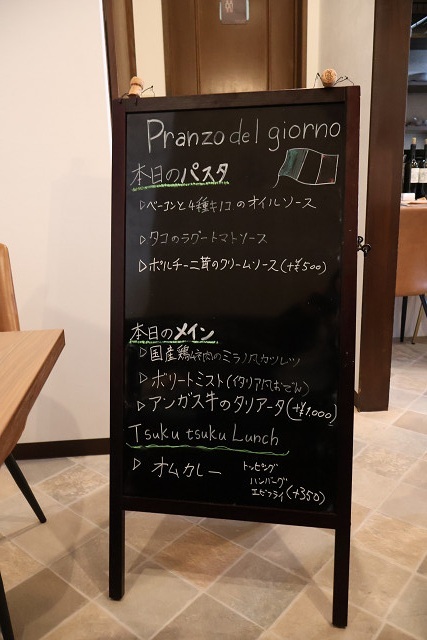 Pranzo del giorno
本日のパスタ
▷ベーコンと4種キノコのオイルソース
▷タコのラグートマトソース
▷ポルチーニ茸のクリームソース(+¥500)
本日のメイン
▷国産鶏ムネ肉のミラノ風カツレツ
▷ボリートミスト(イタリア風おでん)
▷アンガス牛のタリアータ(+¥1,000)
Tsuku tsuku Lunch
▷オムカレー
トッピング
ハンバーグ
エビフライ(+350)